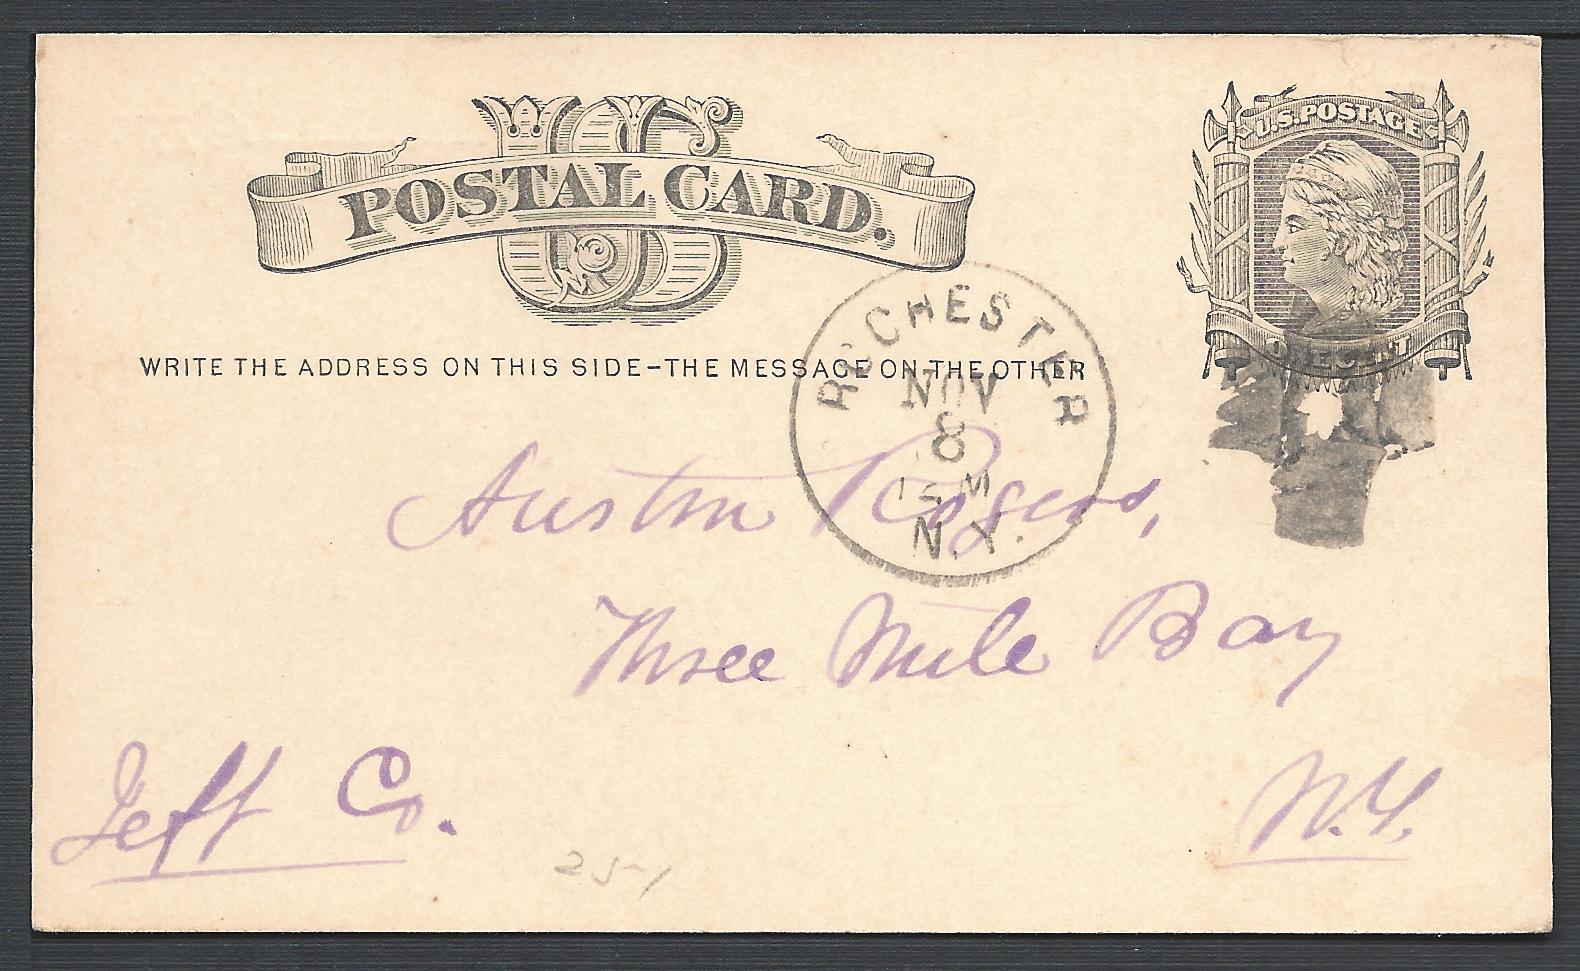 US
POSTAL CARD.
U.S. POSTAGE
ONE CENT
WRITE THE ADDRESS ON THIS SIDE–THE MESSAGE ON THE OTHER
ROCHESTER
NOV
8
N.Y.
Austin Rogers,
Three Mile Bay
Jeff Co.
N.Y.
251